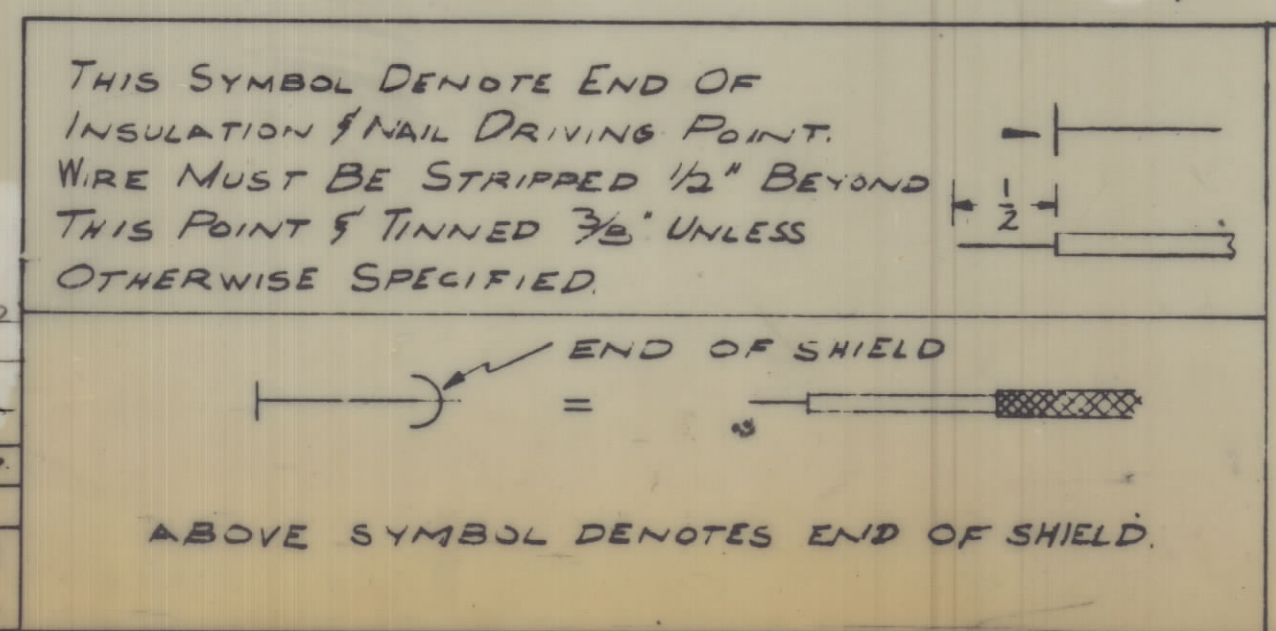 THIS SYMBOL DENOTE END OF
INSULATION & NAIL DRIVING POINT.
WIRE MUST BE STRIPPED 1/2" BEYOND
THIS POINT & TINNED 3/8" UNLESS
OTHERWISE SPECIFIED.
1/2
END OF SHIELD
=
ABOVE SYMBOL DENOTES END OF SHIELD.